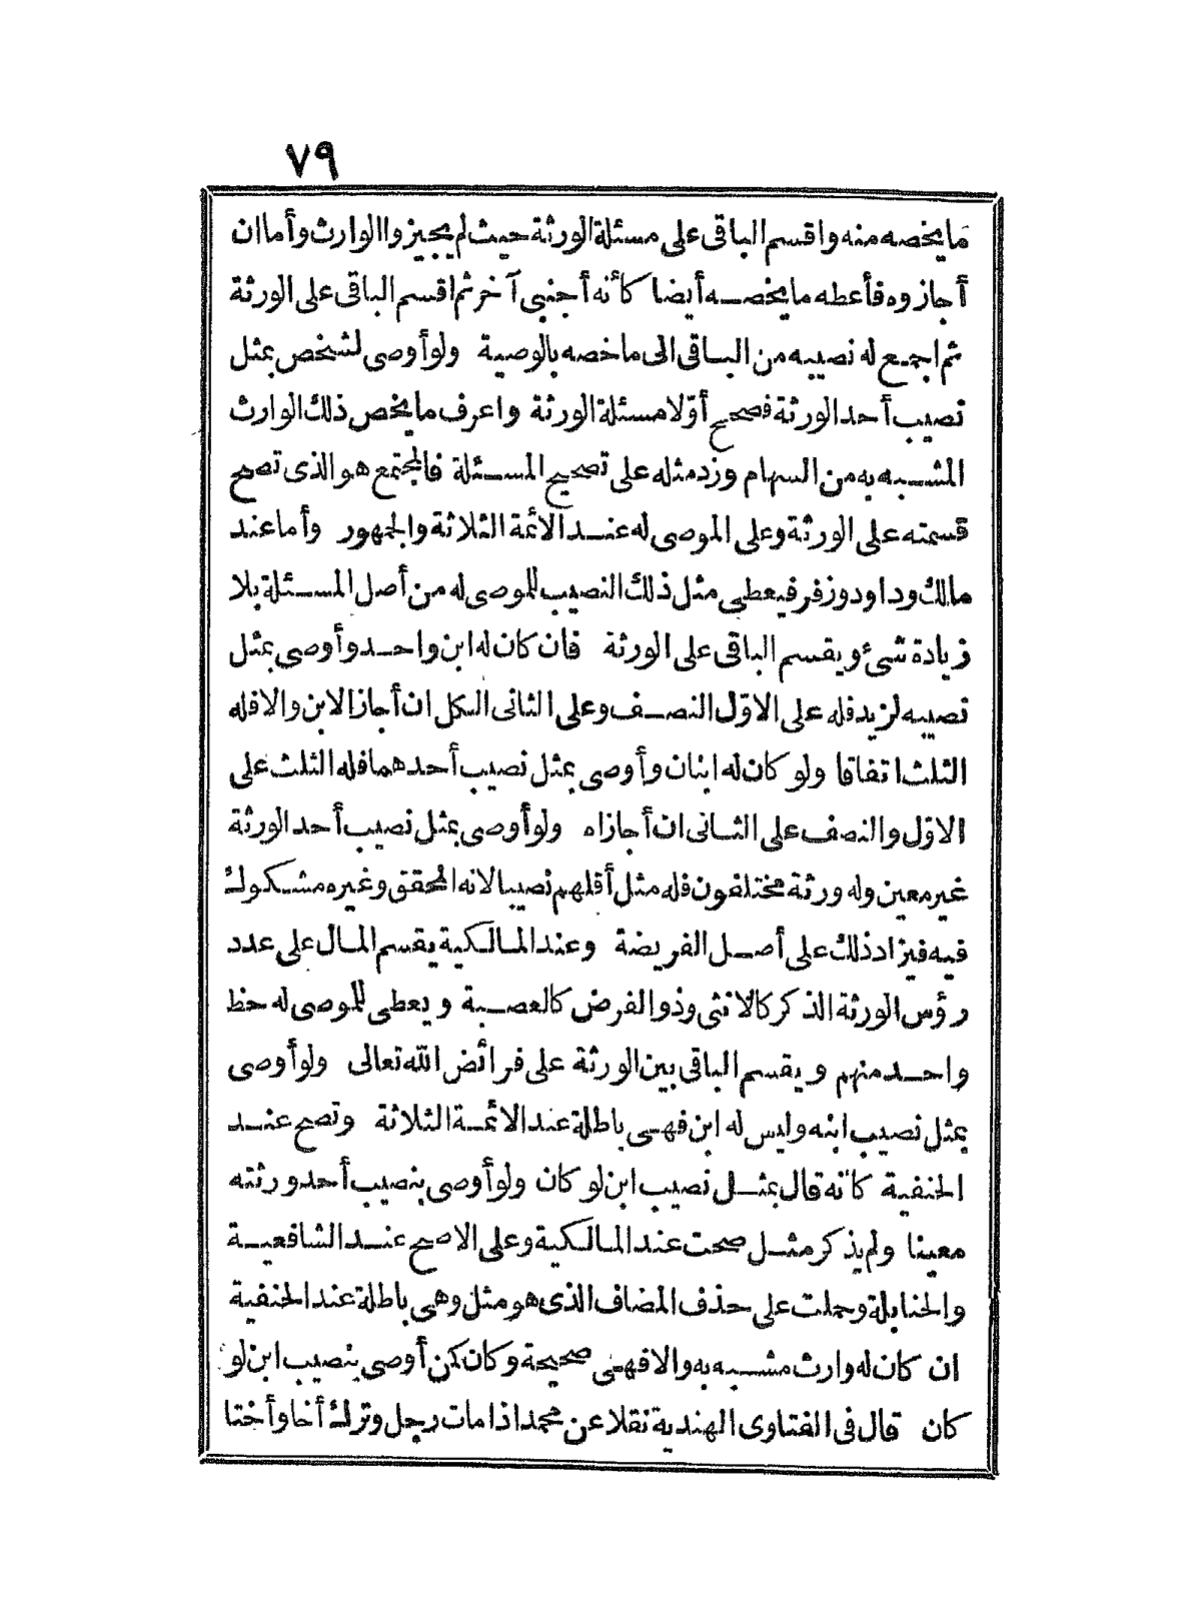 ٧٩
ما يخصه منه واقسم الباقى على مسئلة الورثة حيث لم يجيزوا الوارث وأما ان
أجازوه فأعطه ما يخصه أيضا كأنه أجنبى آخر ثم اقسم الباقى على الورثة
ثم اجمع له نصيبه من الباقى الى ما خصه بالوصية ولو أوصى لشخص بمثل
نصيب أحد الورثة فصحح أوّلا مسئلة الورثة واعرف ما يخص ذلك الوارث
المشبه به من السهام وزد مثله على تصحيح المسئلة فالمجتمع هو الذى تصح
قسمته على الورثة وعلى الموصى له عند الائمة الثلاثة والجمهور وأما عند
مالك وداود وزفر فيعطى مثل ذلك النصيب للموصى له من أصل المسئلة بلا
زيادة شئ ويقسم الباقى على الورثة فان كان له ابن واحد وأوصى بمثل
نصيبه لزيد فله على الاوّل النصف وعلى الثانى الكل ان أجاز الابن والا فله
الثلث اتفاقا ولو كان له ابنان وأوصى بمثل نصيب أحدهما فله الثلث على
الاوّل والنصف على الثانى ان أجازاه ولو أوصى بمثل نصيب أحد الورثة
غير معين وله ورثة مختلفون فله مثل أقلهم نصيبا لانه المحقق وغيره مشكوك
فيه فيزاد ذلك على أصل الفريضة وعند المالكية يقسم المال على عدد
رؤس الورثة الذكر كالانثى وذو الفرض كالعصبة ويعطى للموصى له حظ
واحد منهم ويقسم الباقى بين الورثة على فرائض الله تعالى ولو أوصى
بمثل نصيب ابنه وليس له ابن فهى باطلة عند الائمة الثلاثة وتصح عند
الحنفية كأنه قال بمثل نصيب ابن لو كان ولو أوصى بنصيب أحد ورثته
معينا ولم يذكر مثل صحت عند المالكية وعلى الاصح عند الشافعية
والحنابلة وحملت على حذف المضاف الذى هو مثل وهى باطلة عند الحنفية
ان كان له وارث مشبه به والا فهى صحيحة وكان كمن أوصى بنصيب ابن لو
كان قال فى الفتاوى الهندية نقلا عن محمد اذا مات رجل وترك أخا وأختا